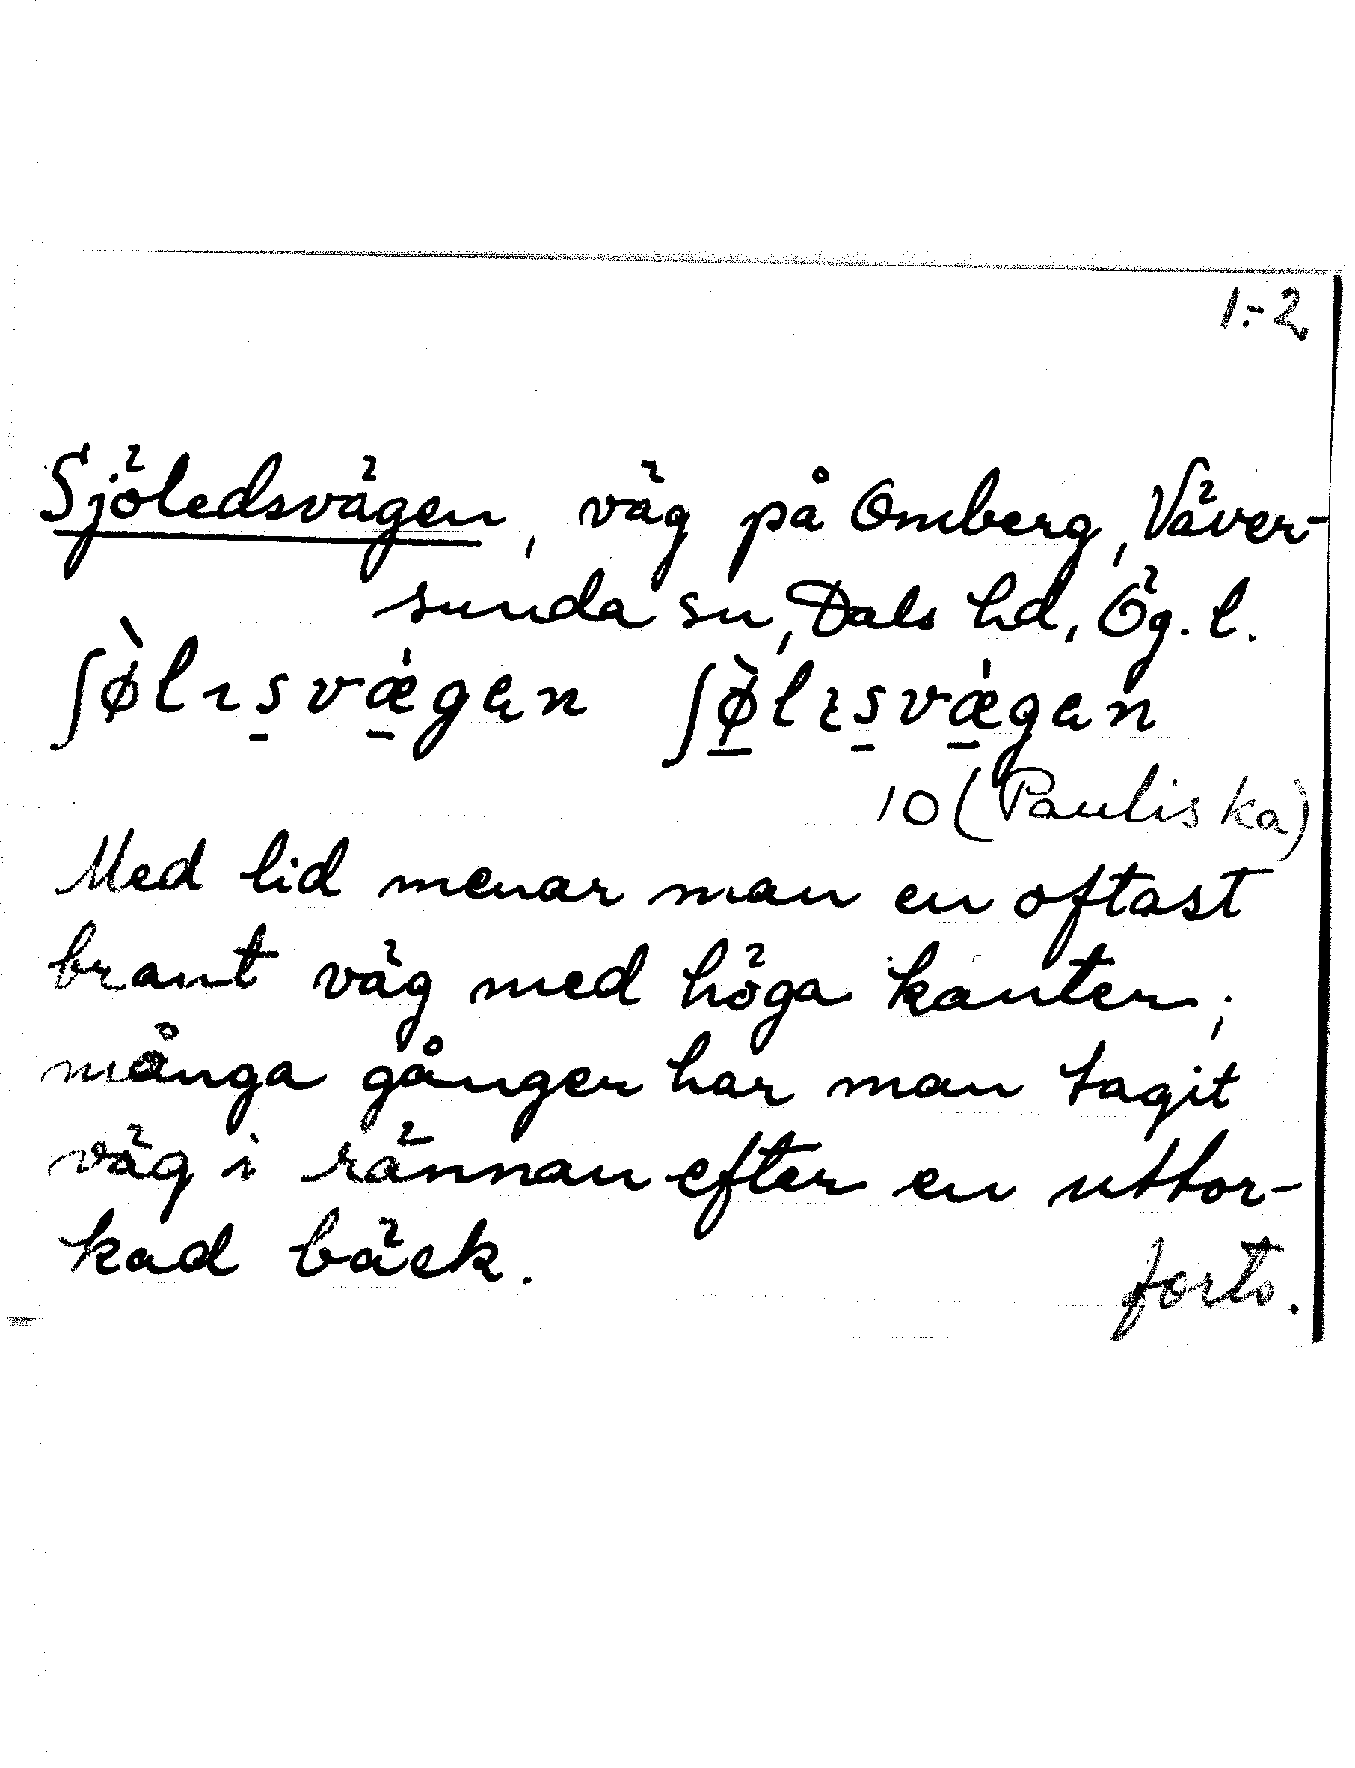 1.-2
Sjöledsvägen, väg på Omberg, Väver-
sunda sn, Dals hd, Ög. l.
ʃø̀lɪs̱vǽ̱gən ʃø̱̀lɪs̱vǽ̱gən
10 (Pauliska)
Med lid menar man en oftast
brant väg med höga kanter;
många gånger har man tagit
väg i rännan efter en uttor-
kad bäck.
forts.